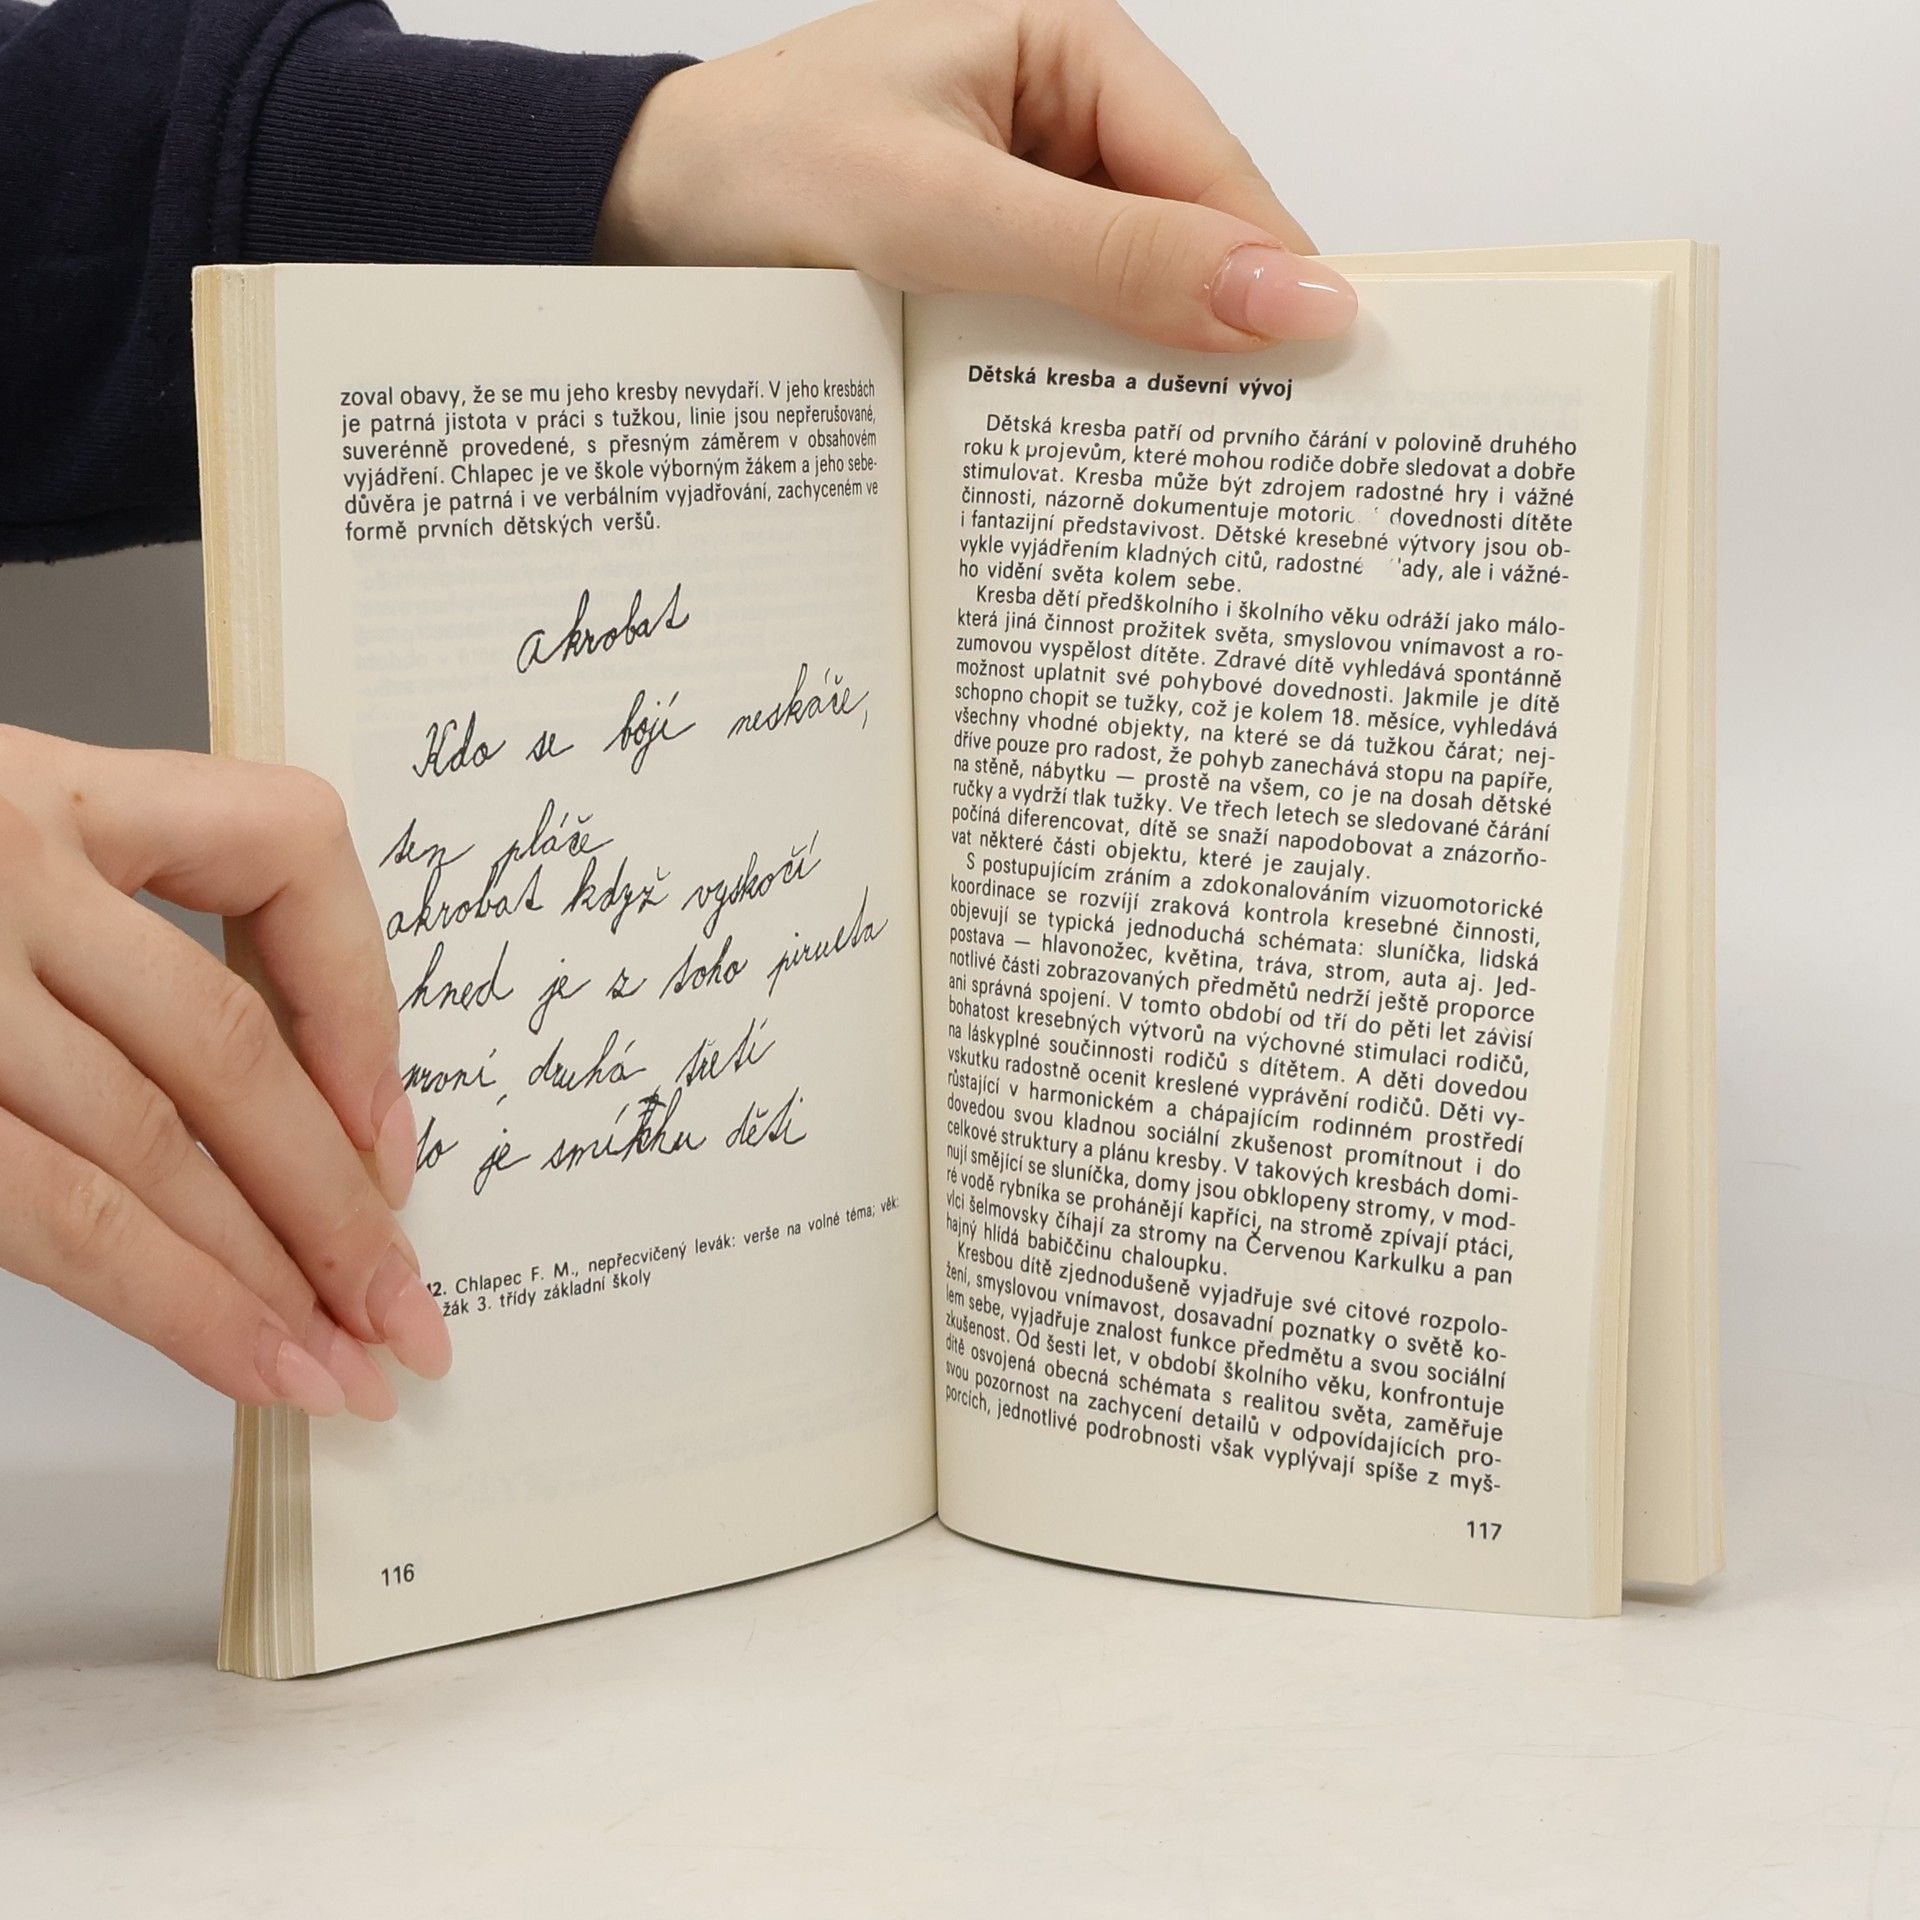 zoval obavy, že se mu jeho kresby nevydaří. V jeho kresbách
je patrná jistota v práci s tužkou, linie jsou nepřerušované,
suverénně provedené, s přesným záměrem v obsahovém
vyjádření. Chlapec je ve škole výborným žákem a jeho sebe-
důvěra je patrná i ve verbálním vyjadřování, zachyceném ve
formě prvních dětských veršů.
akrobat
Kdo se bojí neskáče,
ten pláče
akrobat když vyskočí
hned je z toho pirueta
první, druhá, třetí
to je smíchu děti
12. Chlapec F. M., nepřecvičený levák: verše na volné téma; věk:
žák 3. třídy základní školy
116
Dětská kresba a duševní vývoj
Dětská kresba patří od prvního čárání v polovině druhého
roku k projevům, které mohou rodiče dobře sledovat a dobře
stimulovat. Kresba může být zdrojem radostné hry i vážné
činnosti, názorně dokumentuje dovednosti dítěte
i fantazijní představivost. Dětské kresebné výtvory jsou ob-
vykle vyjádřením kladných citů, radostné ale i vážné-
ho vidění světa kolem sebe.
Kresba dětí předškolního i školního věku odráží jako málo-
která jiná činnost prožitek světa, smyslovou vnímavost a ro-
zumovou vyspělost dítěte. Zdravé dítě vyhledává spontánně
možnost uplatnit své pohybové dovednosti. Jakmile je dítě
schopno chopit se tužky, což je kolem 18. měsíce, vyhledává
všechny vhodné objekty, na které se dá tužkou čárat; nej-
dříve pouze pro radost, že pohyb zanechává stopu na papíře,
na stěně, nábytku — prostě na všem, co je na dosah dětské
ručky a vydrží tlak tužky. Ve třech letech se sledované čárání
počíná diferencovat, dítě se snaží napodobovat a znázorňo-
vat některé části objektu, které je zaujaly.
S postupujícím zráním a zdokonalováním vizuomotorické
koordinace se rozvíjí zraková kontrola kresebné činnosti,
objevují se typická jednoduchá schémata: sluníčka, lidská
postava — hlavonožec, květina, tráva, strom, auta aj. Jed-
notlivé části zobrazovaných předmětů nedrží ještě proporce
ani správná spojení. V tomto období od tří do pěti let závisí
bohatost kresebných výtvorů na výchovné stimulaci rodičů,
na láskyplné součinnosti rodičů s dítětem. A děti dovedou
vskutku radostně ocenit kreslené vyprávění rodičů. Děti vy-
růstající v harmonickém a chápajícím rodinném prostředí
dovedou svou kladnou sociální zkušenost promítnout i do
celkové struktury a plánu kresby. V takových kresbách domi-
nují smějící se sluníčka, domy jsou obklopeny stromy, v mod-
ré vodě rybníka se prohánějí kapříci, na stromě zpívají ptáci,
vlci šelmovsky číhají za stromy na Červenou Karkulku a pan
hajný hlídá babiččinu chaloupku.
Kresbou dítě zjednodušeně vyjadřuje své citové rozpolo-
žení, smyslovou vnímavost, dosavadní poznatky o světě ko-
lem sebe, vyjadřuje znalost funkce předmětu a svou sociální
zkušenost. Od šesti let, v období školního věku, konfrontuje
dítě osvojená obecná schémata s realitou světa, zaměřuje
svou pozornost na zachycení detailů v odpovídajících pro-
porcích, jednotlivé podrobnosti však vyplývají spíše z myš-
117